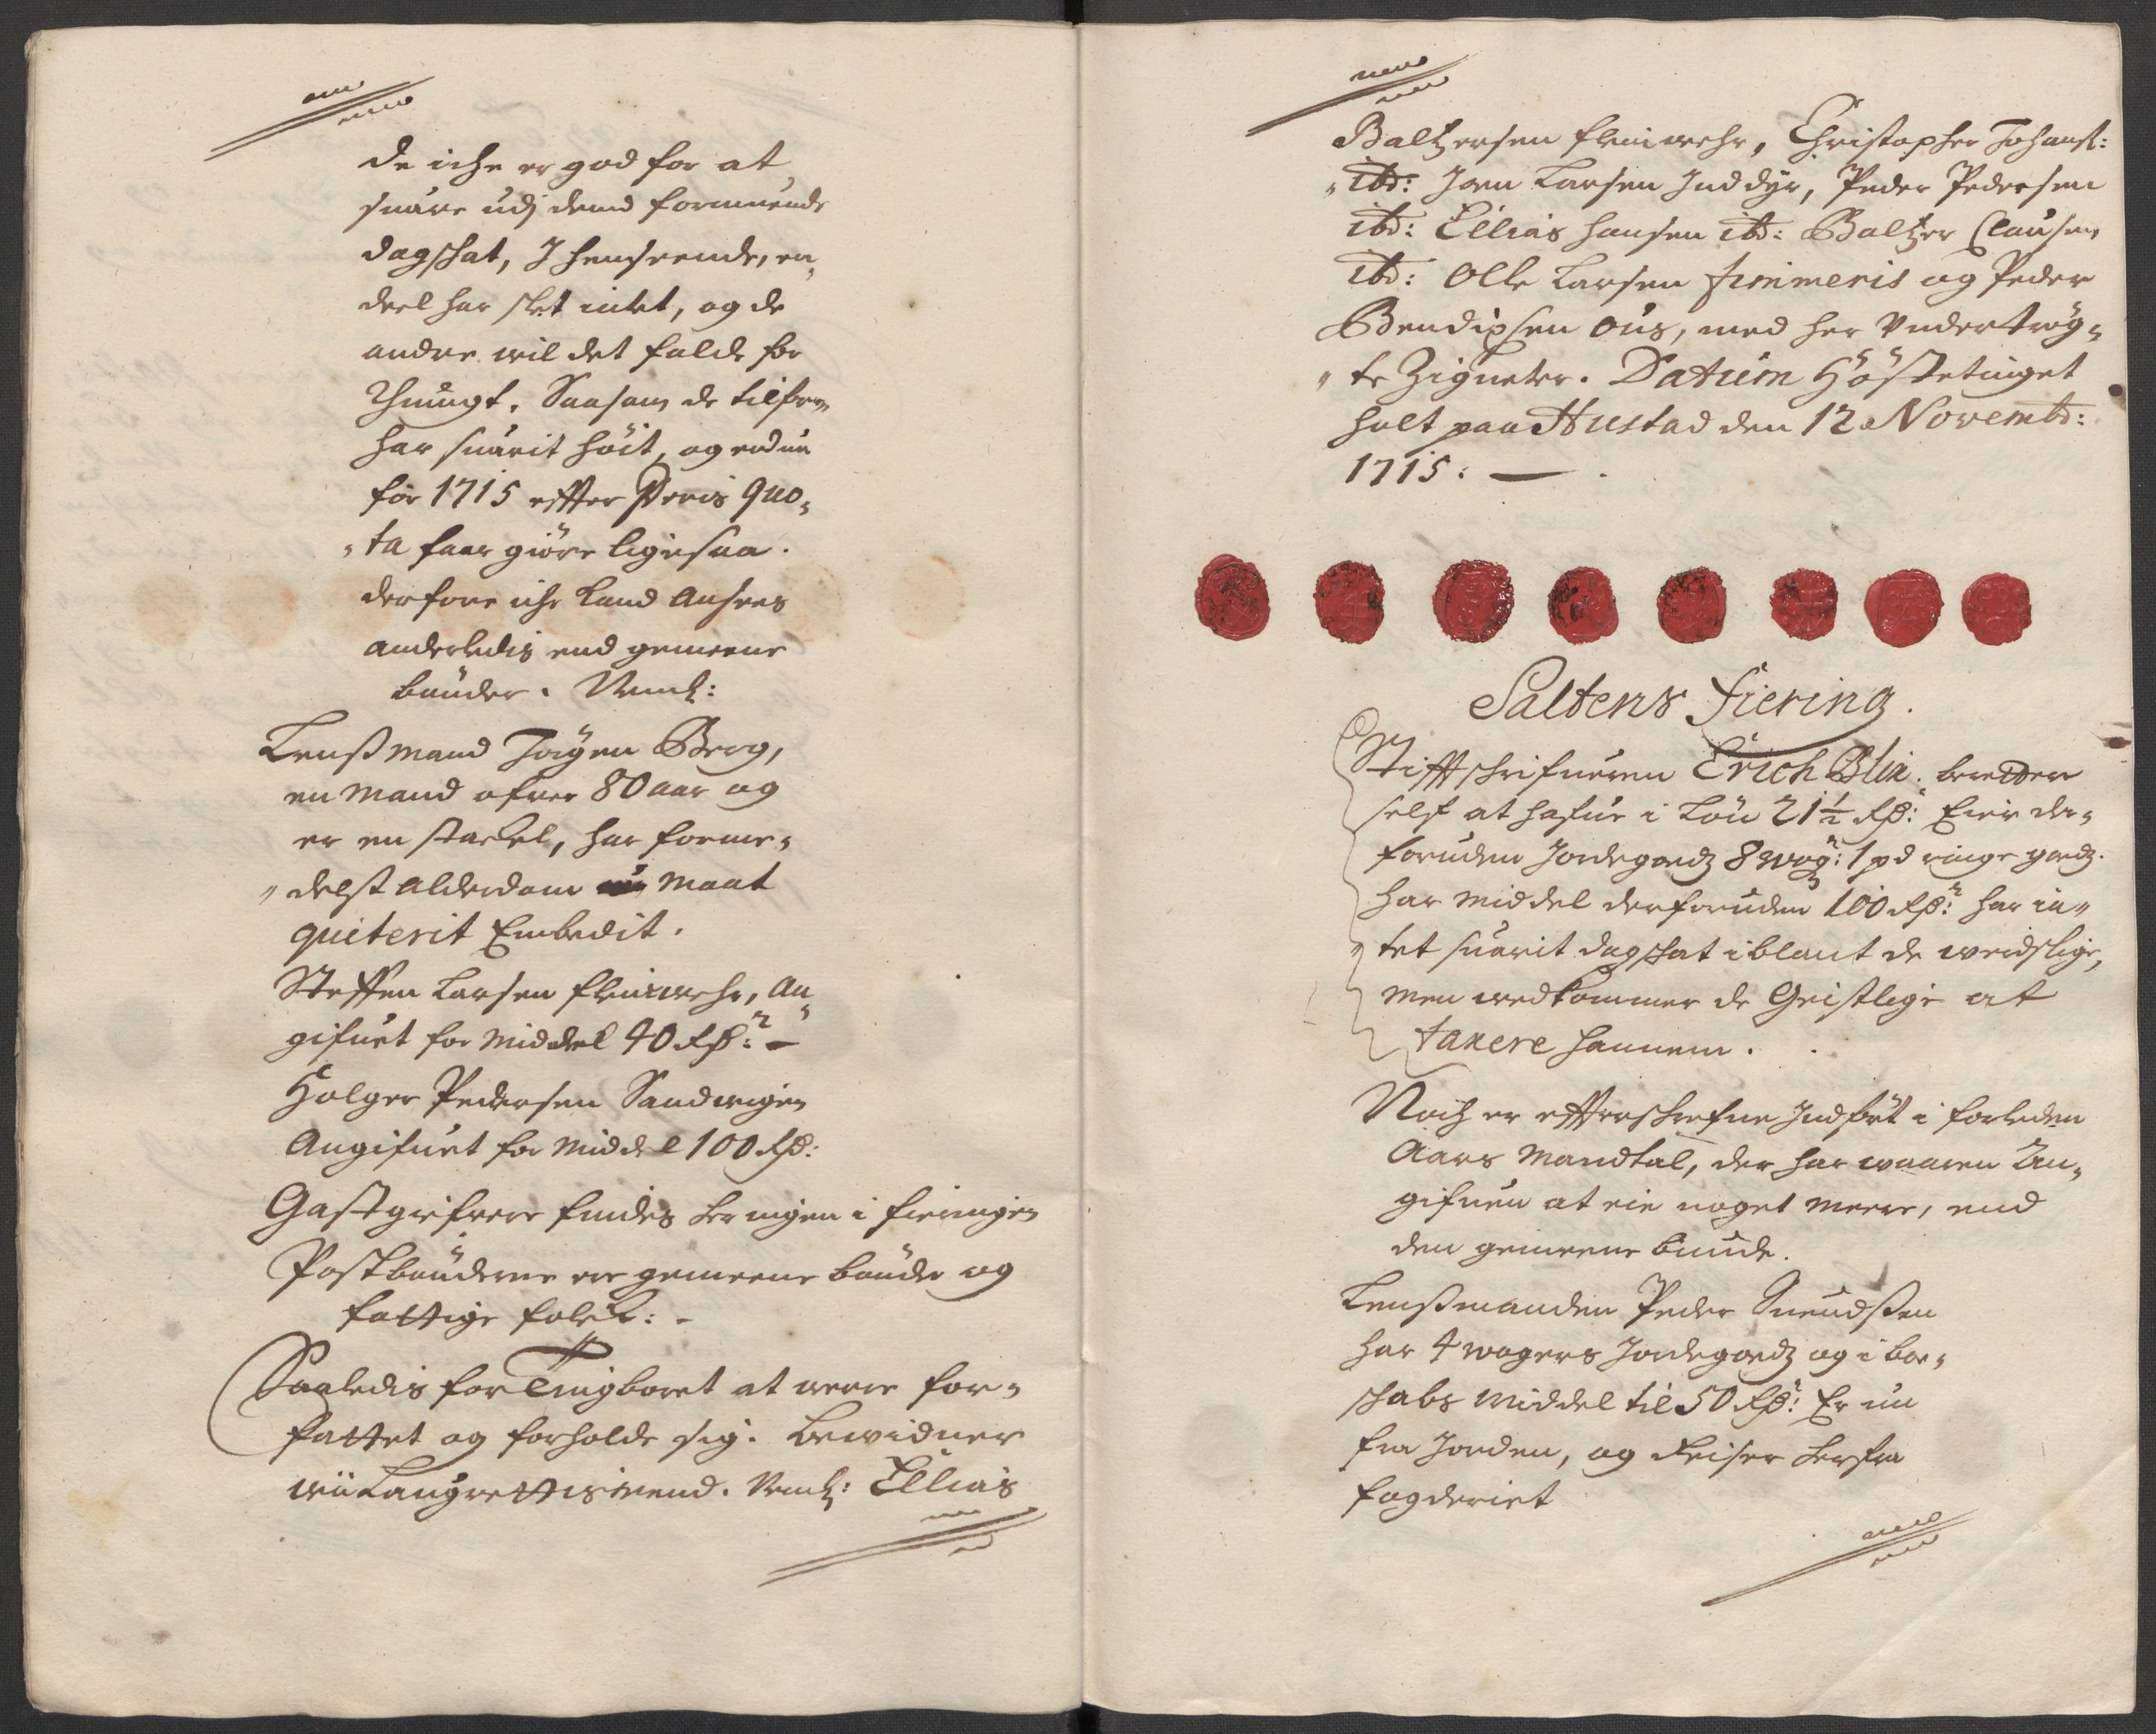 de iche er god for at
suare udj denne formuende
dagskat, J henseende, en„
deel har slet intet, og de
andre wil det falde for
Thungt. Saasom de tilforn
har suarit höit, og endnu
for 1715 effter Prris quo„
„ta faar giöre ligesaa.
derfore iche kand Ansees
anderledis end gemeene
bønder. Neml:
Lensßmand Jørgen Berg,
en Mand ofver 80 aar og
er en stackel, har forme„
„delst alderdom maat
quiterit Embedit.
Steffen Larsen Fleinwehr, An„
gifuet for Middel 40 Rdr: –
Holger Pedersen Sandwigen
Angifuet for Middel 100 Rdr:
Gastgiefvere findes her ingen i fieringen
Postbønderne er gemeene bønder og
fattige folck: –
Saaledis for Tingboret at were for„
fattet og forholde sig. bewidner
wii Laugrettismend. Neml: Ellias
Baltzersen Fleinwehr, Christopher Johans:
„ibd: Joen Larsen Inddyr, Peder Pedersen
ibd: Ellias Hansen ibd: Baltzer Clausen
ibd: Olle Larsen Finmeris og Peder
Bendixsen Ous, med her Vndertrög„
„te Zigneter. Datum Höstetinget
holt paa Hustad den 12 Novembr:
1715: —
Saltens Fiering.
Stifftschrifueren Erich Blix. beretter
self at hafue i Lön 21½ Rdr: Eier der„
foruden Jordegodz 8 wog: 1 pd ringe godz.
har middel derforuden 100 Rdr: har in„
„tet suarit dagskat iblant de werdslige,
men wedkommer de Geistlige at
taxere hannem.
Noch er effterschrefne Indført i forleden
Aars Mandtal, der har waaren An„
gifuen at eie noget meere, end
den gemeene bunde.
Lensßmanden Peder Suendsßen
har 4 wogers Jordegodz og i boe„
skabs middel til 50 Rdr: Er nu
fra Jorden, og Reiser herfra
fogderiet